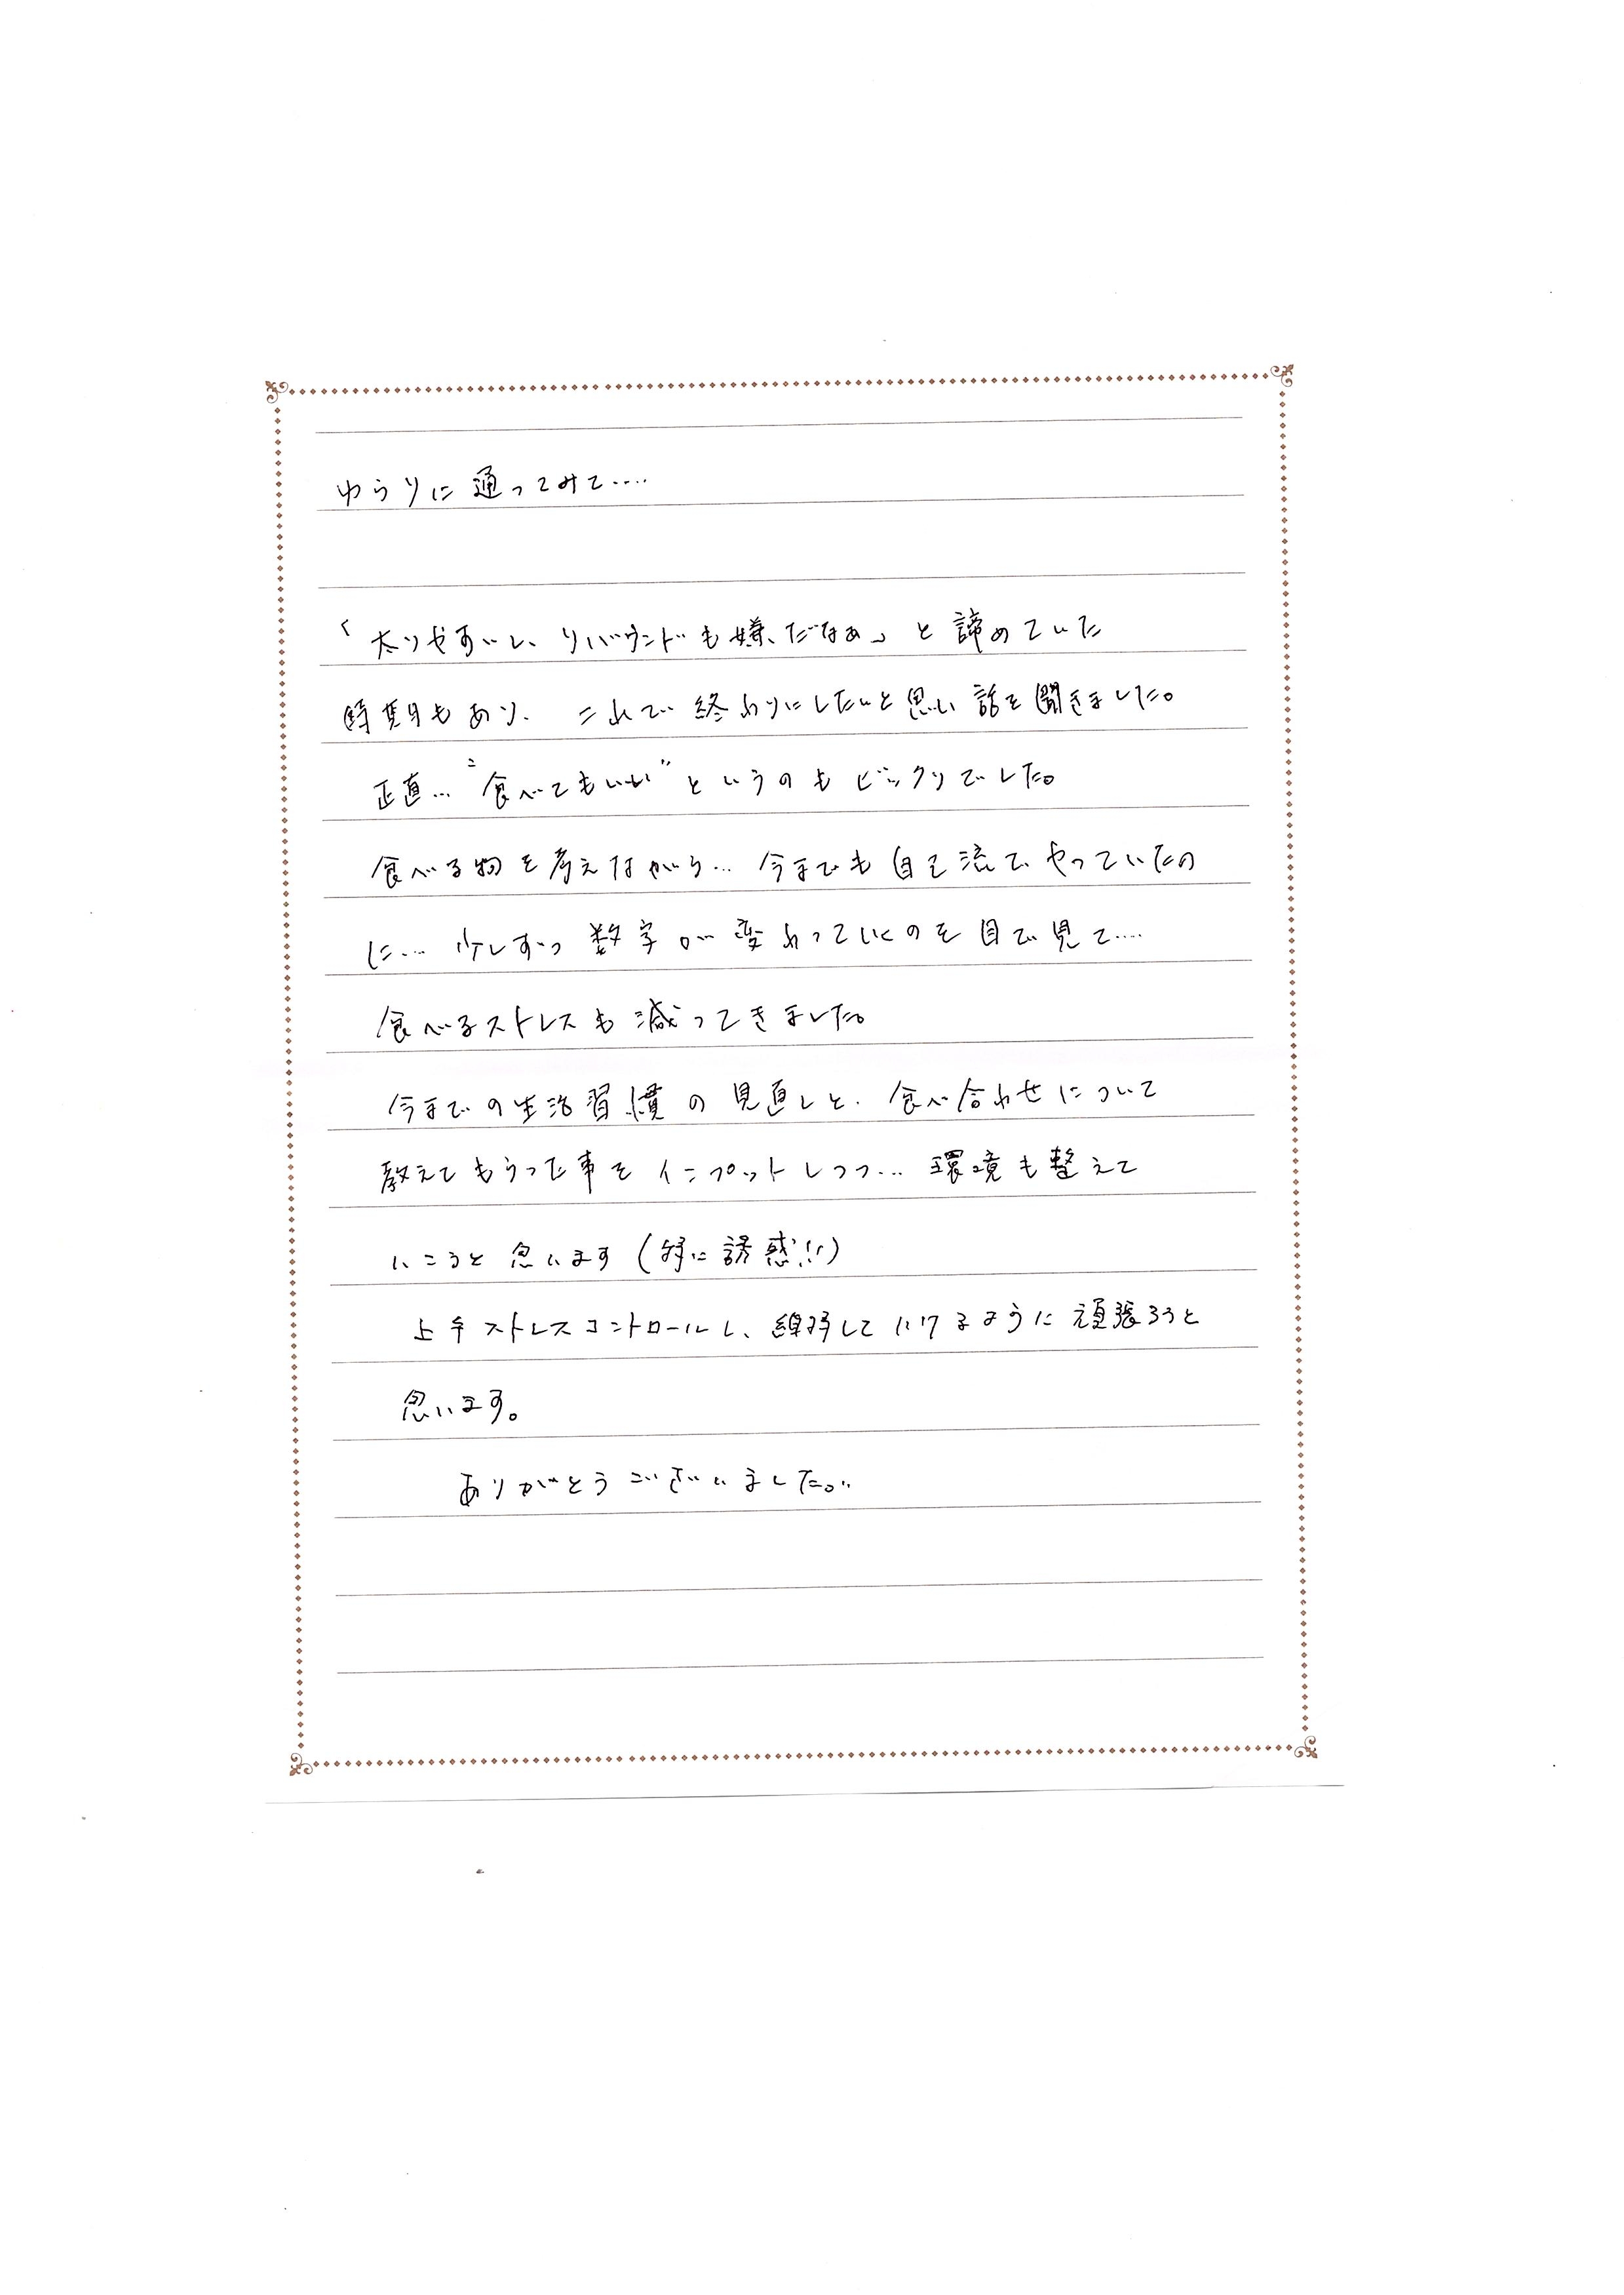 ゆらりに通ってみて....
「太りやすいし、リバウンドも嫌だなぁ」と諦めていた
時期もあり、これで終わりにしたいと思い話を聞きました。
正直…"食べてもいい"というのもビックリでした。
食べる物を考えながら…今までも自己流でやっていたの
に…少しずつ数字が変わっていくのを目で見て....
食べるストレスも減ってきました。
今までの生活習慣の見直しと、食べ合わせについて
教えてもらった事をインプットしつつ…環境も整えて
いこうと思います(特に誘惑!!)
上手ストレスコントロールし、継続していけるように頑張ろうと
思います。
ありがとうございました。